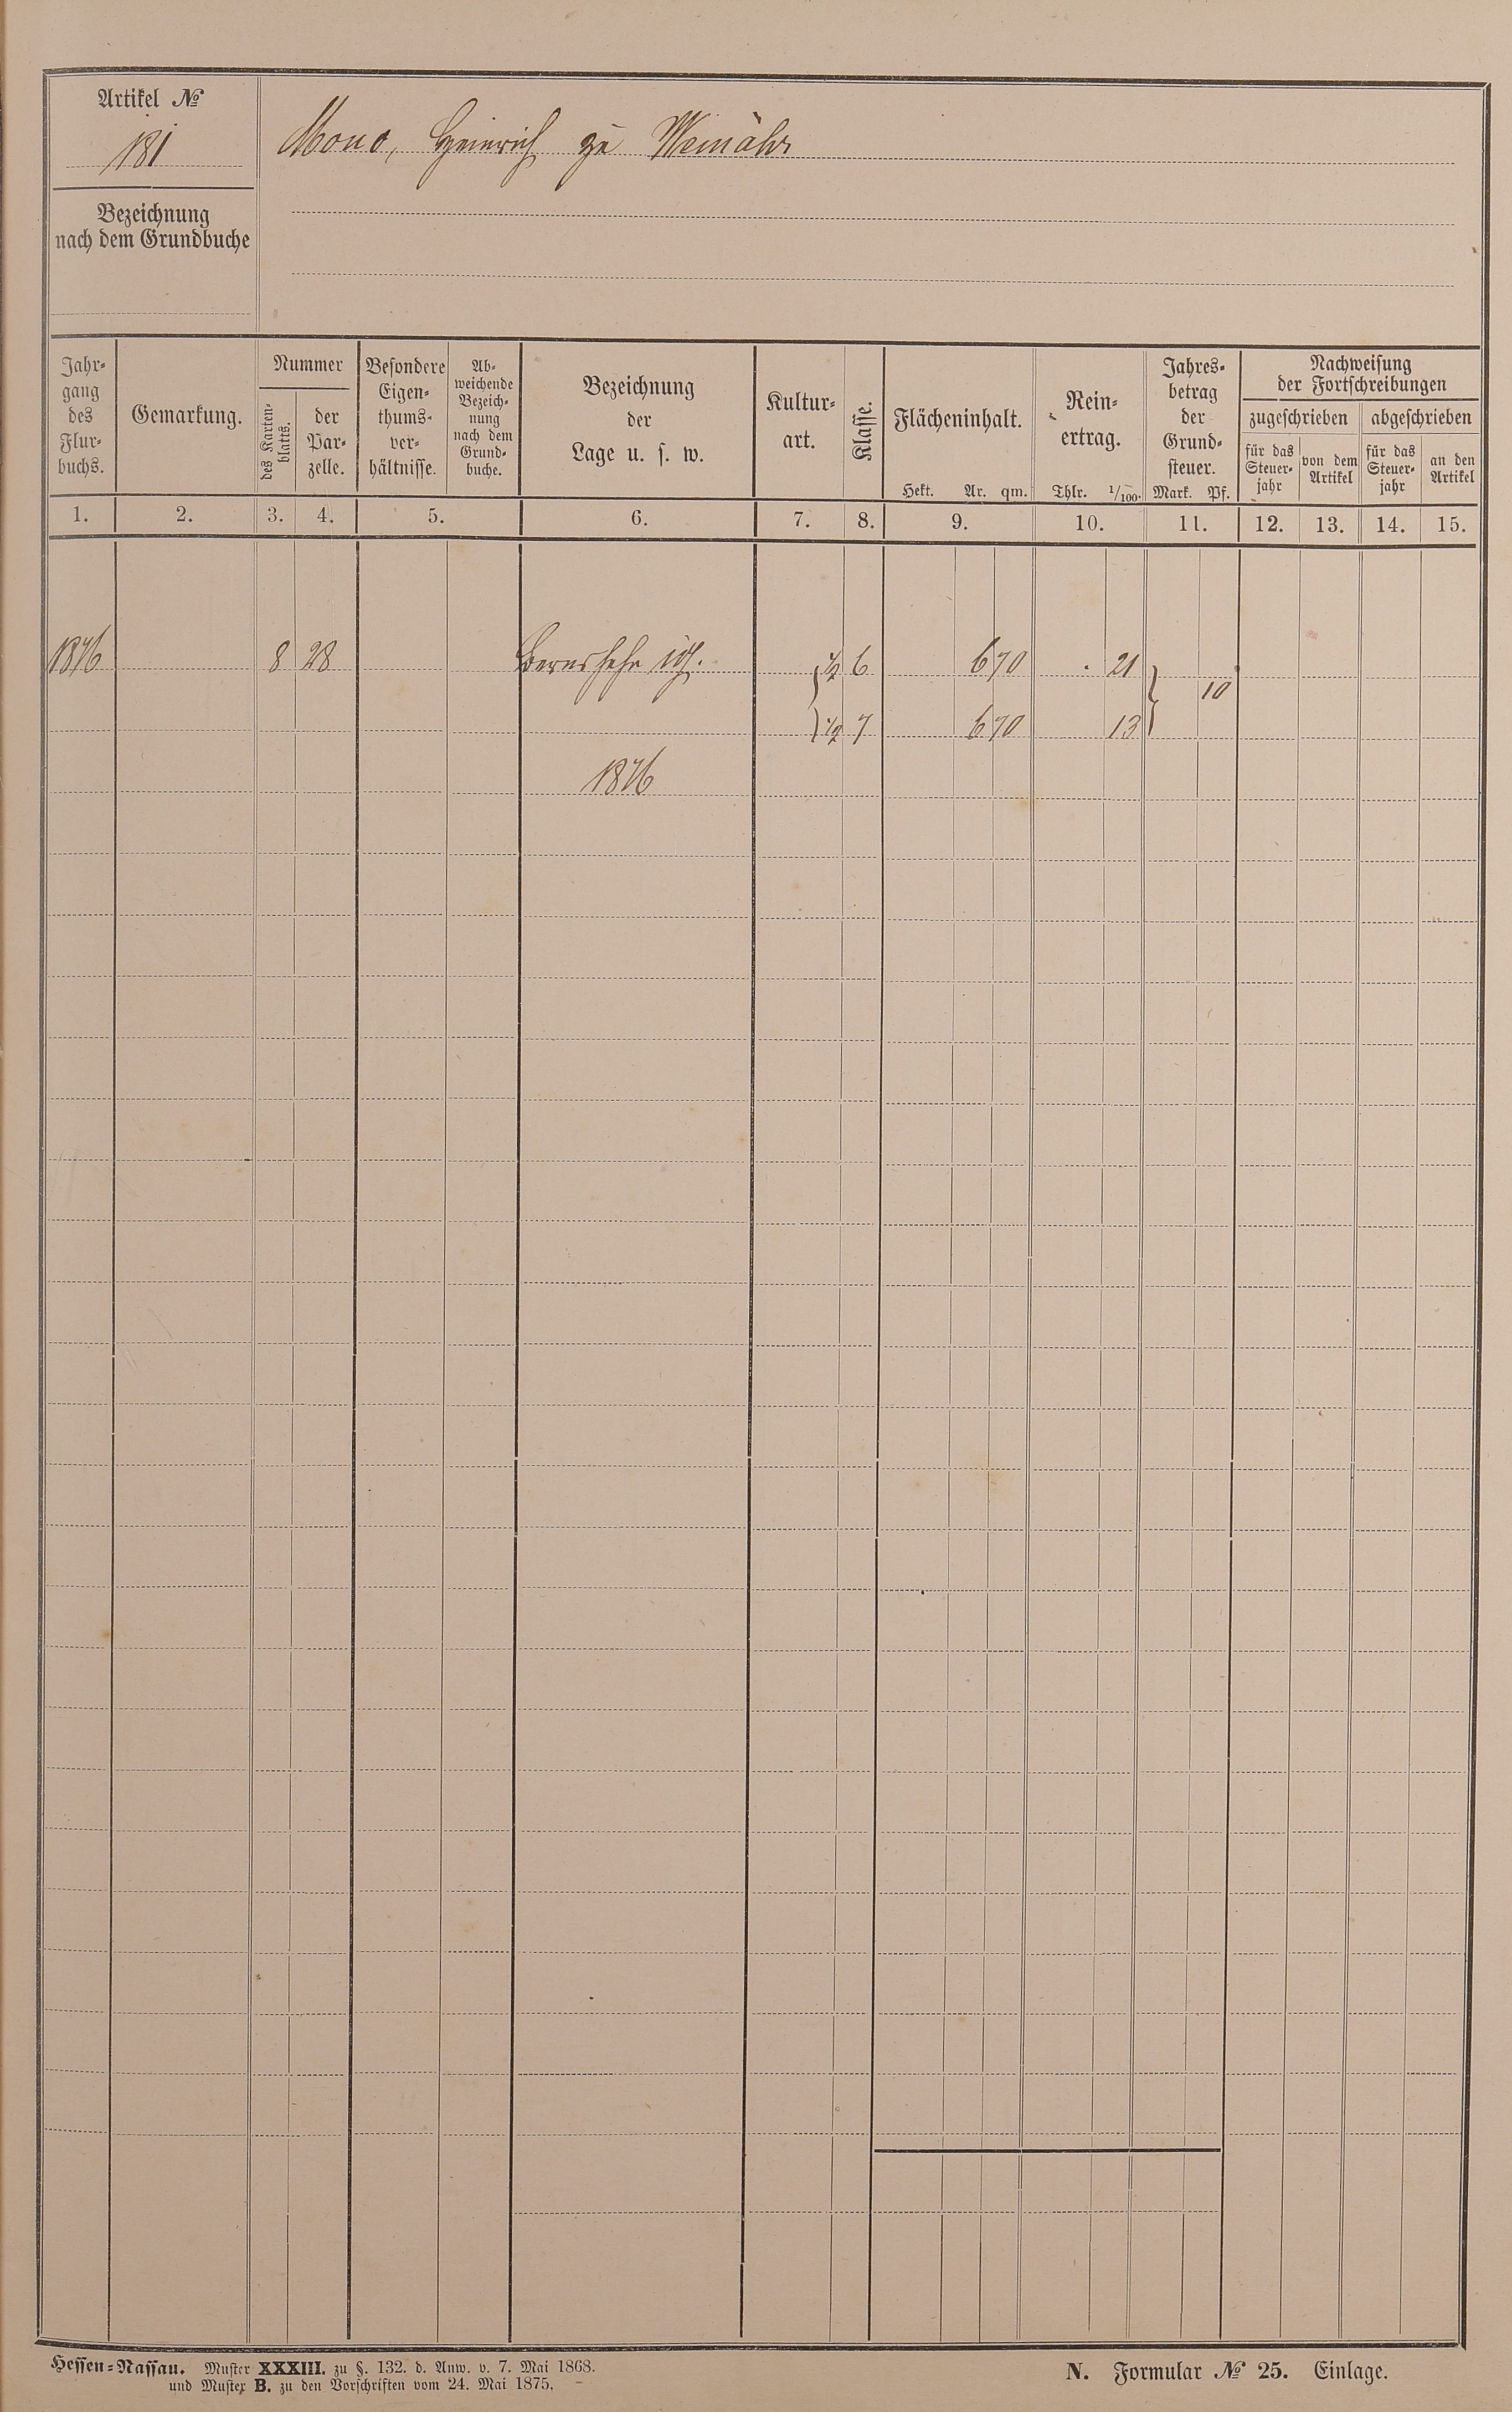 Artikel №
181
Mono, Heinrich zu Weinähr
Bezeichnung
nach dem Grundbuche
Jahr-
gang
des
Flur-
buchs.
Gemarkung.
Nummer
des Karten-
blatts.
der
Par-
zelle.
Besondere
Eigen-
thums-
ver-
hältnisse.
Ab-
weichende
Bezeich-
nung
nach dem
Grund-
buche.
Bezeichnung
der
Lage u. s. w.
Kultur-
art.
Klasse.
Flächeninhalt.
Hekt. Ar. qm.
Rein-
ertrag.
Thlr. 1/100.
Jahres-
betrag
der
Grund-
steuer.
Mark. Pf.
Nachweisung
der Fortschreibungen
zugeschrieben abgeschrieben
für das
Steuer-
jahr
von dem
Artikel
für das
Steuer-
jahr
an den
Artikel
1. 2. 3. 4. 5. 6. 7. 8. 9. 10. 11. 12. 13. 14. 15.
1876 8 28 1/2 6 6 70 . 21
10
1/2 7 6 70 13
1876
Hessen-Nassau. Muster XXXIII. zu §. 132. d. Anw. v. 7. Mai 1868.
und Muster B. zu den Vorschriften vom 24. Mai 1875.
N. Formular № 25. Einlage.